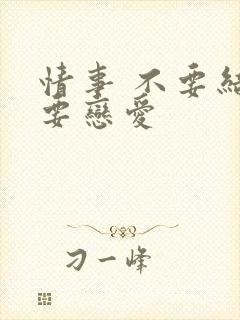 情事 不要結
要戀愛
刁一峰